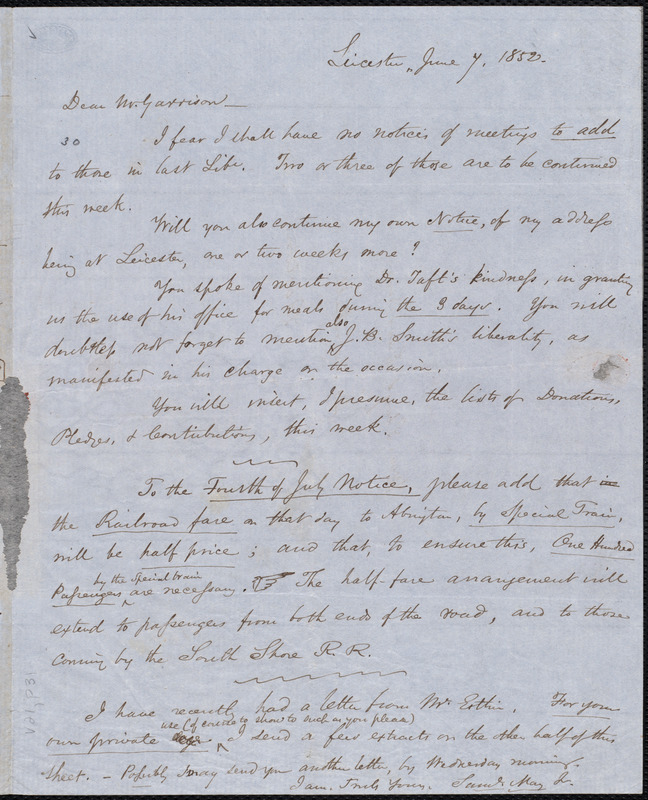 Leicester, June 7, 1852.
Dear Mr. Garrison—
30 I fear I shall have no notices of meetings to add
to those in last Lib. Two or three of those are to be continued
this week.
Will you also continue my own Notice, of my address
being at Leicester, one or two weeks more?
You spoke of mentioning Dr. Taft's kindness, in granting
us the use of his office for meals during the 3 days. You will
doubtless not forget to mention also J. B. Smith's liberality, as
manifested in his charge on the occasion.
You will insert, I presume, the lists of Donations,
Pledges, & Contributions, this week.
To the Fourth of July Notice, please add that in
the Railroad fare on that day to Abington, by Special Train,
will be half price; and that, to ensure this, One Hundred
by the Special train
Passengers are necessary. ☞ The half-fare arrangement will
extend to passengers from both ends of the road, and to those
coming by the South Shore R. R.
I have recently had a letter from Mr. Estlin. For your
use (of course to show to such as you please)
own private I send a few extracts on the other half of this
sheet. – Possibly I may send you another letter, by Wednesday morning.
I am, Truly Yours, Saml. May Jr.